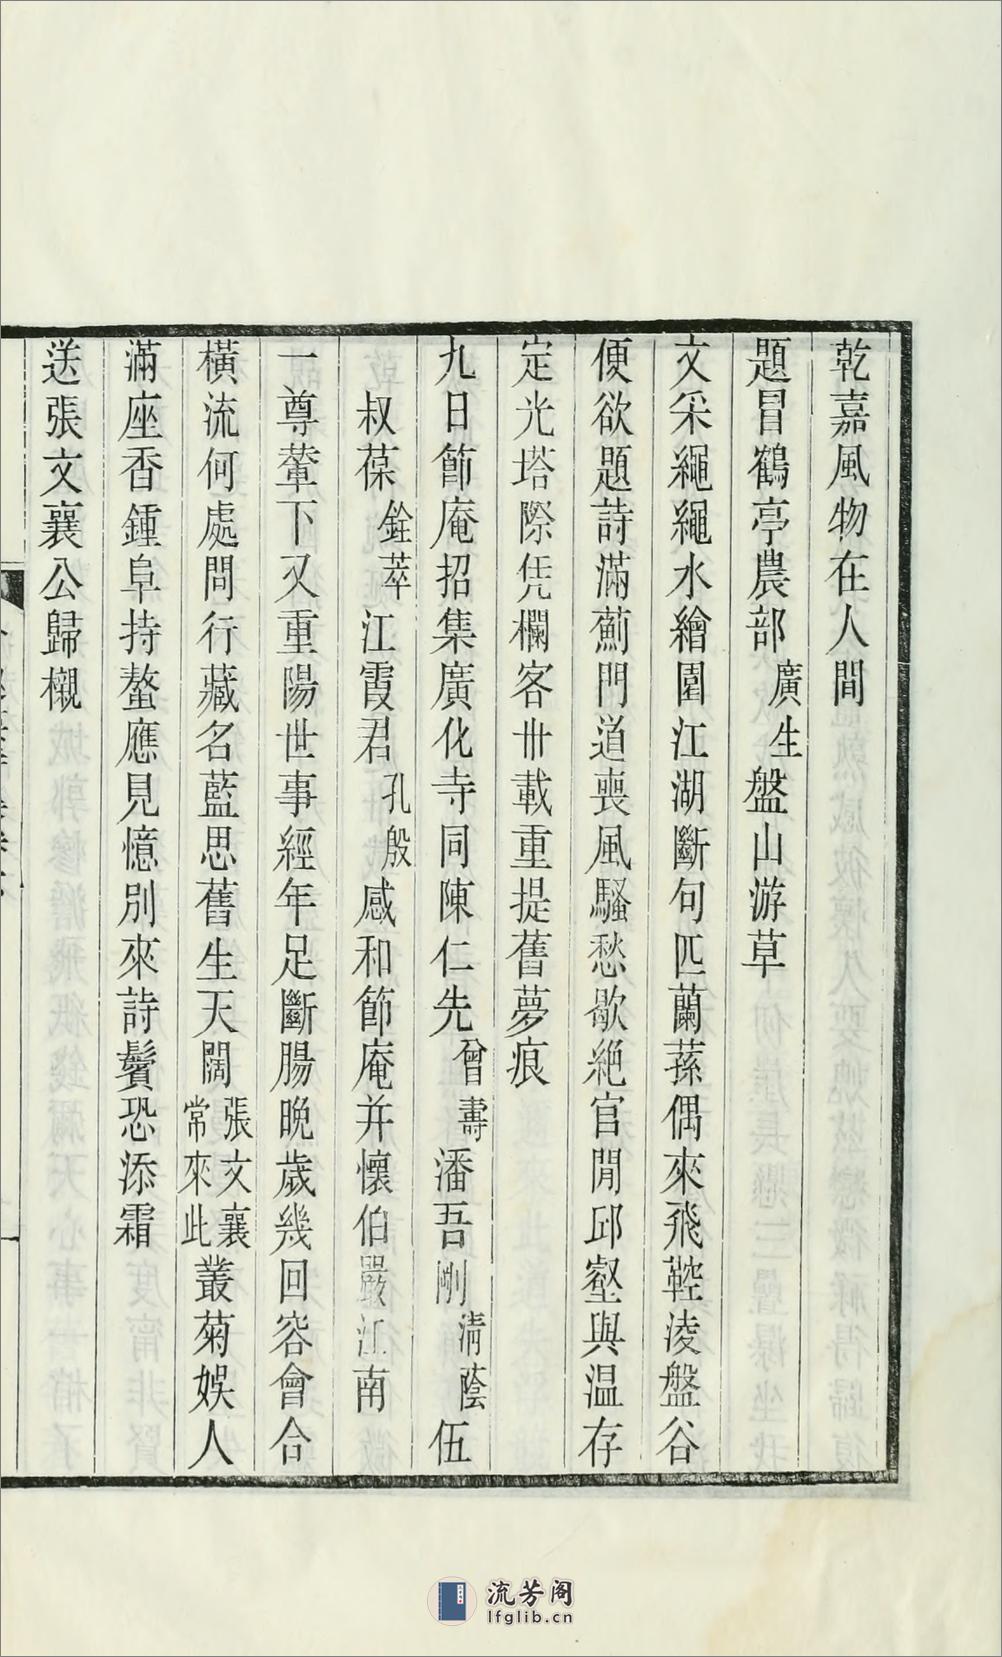 乾嘉風物在人間
題冒鶴亭農部廣生盤山游草
文采繩繩水繪園江湖斷句匹蘭蓀偶來飛鞚淩盤谷
便欲題詩滿薊門道喪風騷愁歇絕官閒邱壑與温存
定光塔際凭欄客卅載重提舊夢痕
九日節庵招集廣化寺同陳仁先曾壽潘吾剛淸蔭伍
叔葆銓萃江霞君孔殷感和節庵并懷伯嚴江南
一尊輦下又重陽世事經年足斷腸晚歲幾回容會合
橫流何處問行藏名藍思舊生天闊張文襄常來此叢菊娛人
滿座香鍾阜持螯應見憶別來詩鬢恐添霜
送張文襄公歸櫬
流芳阁
lfglib.cn